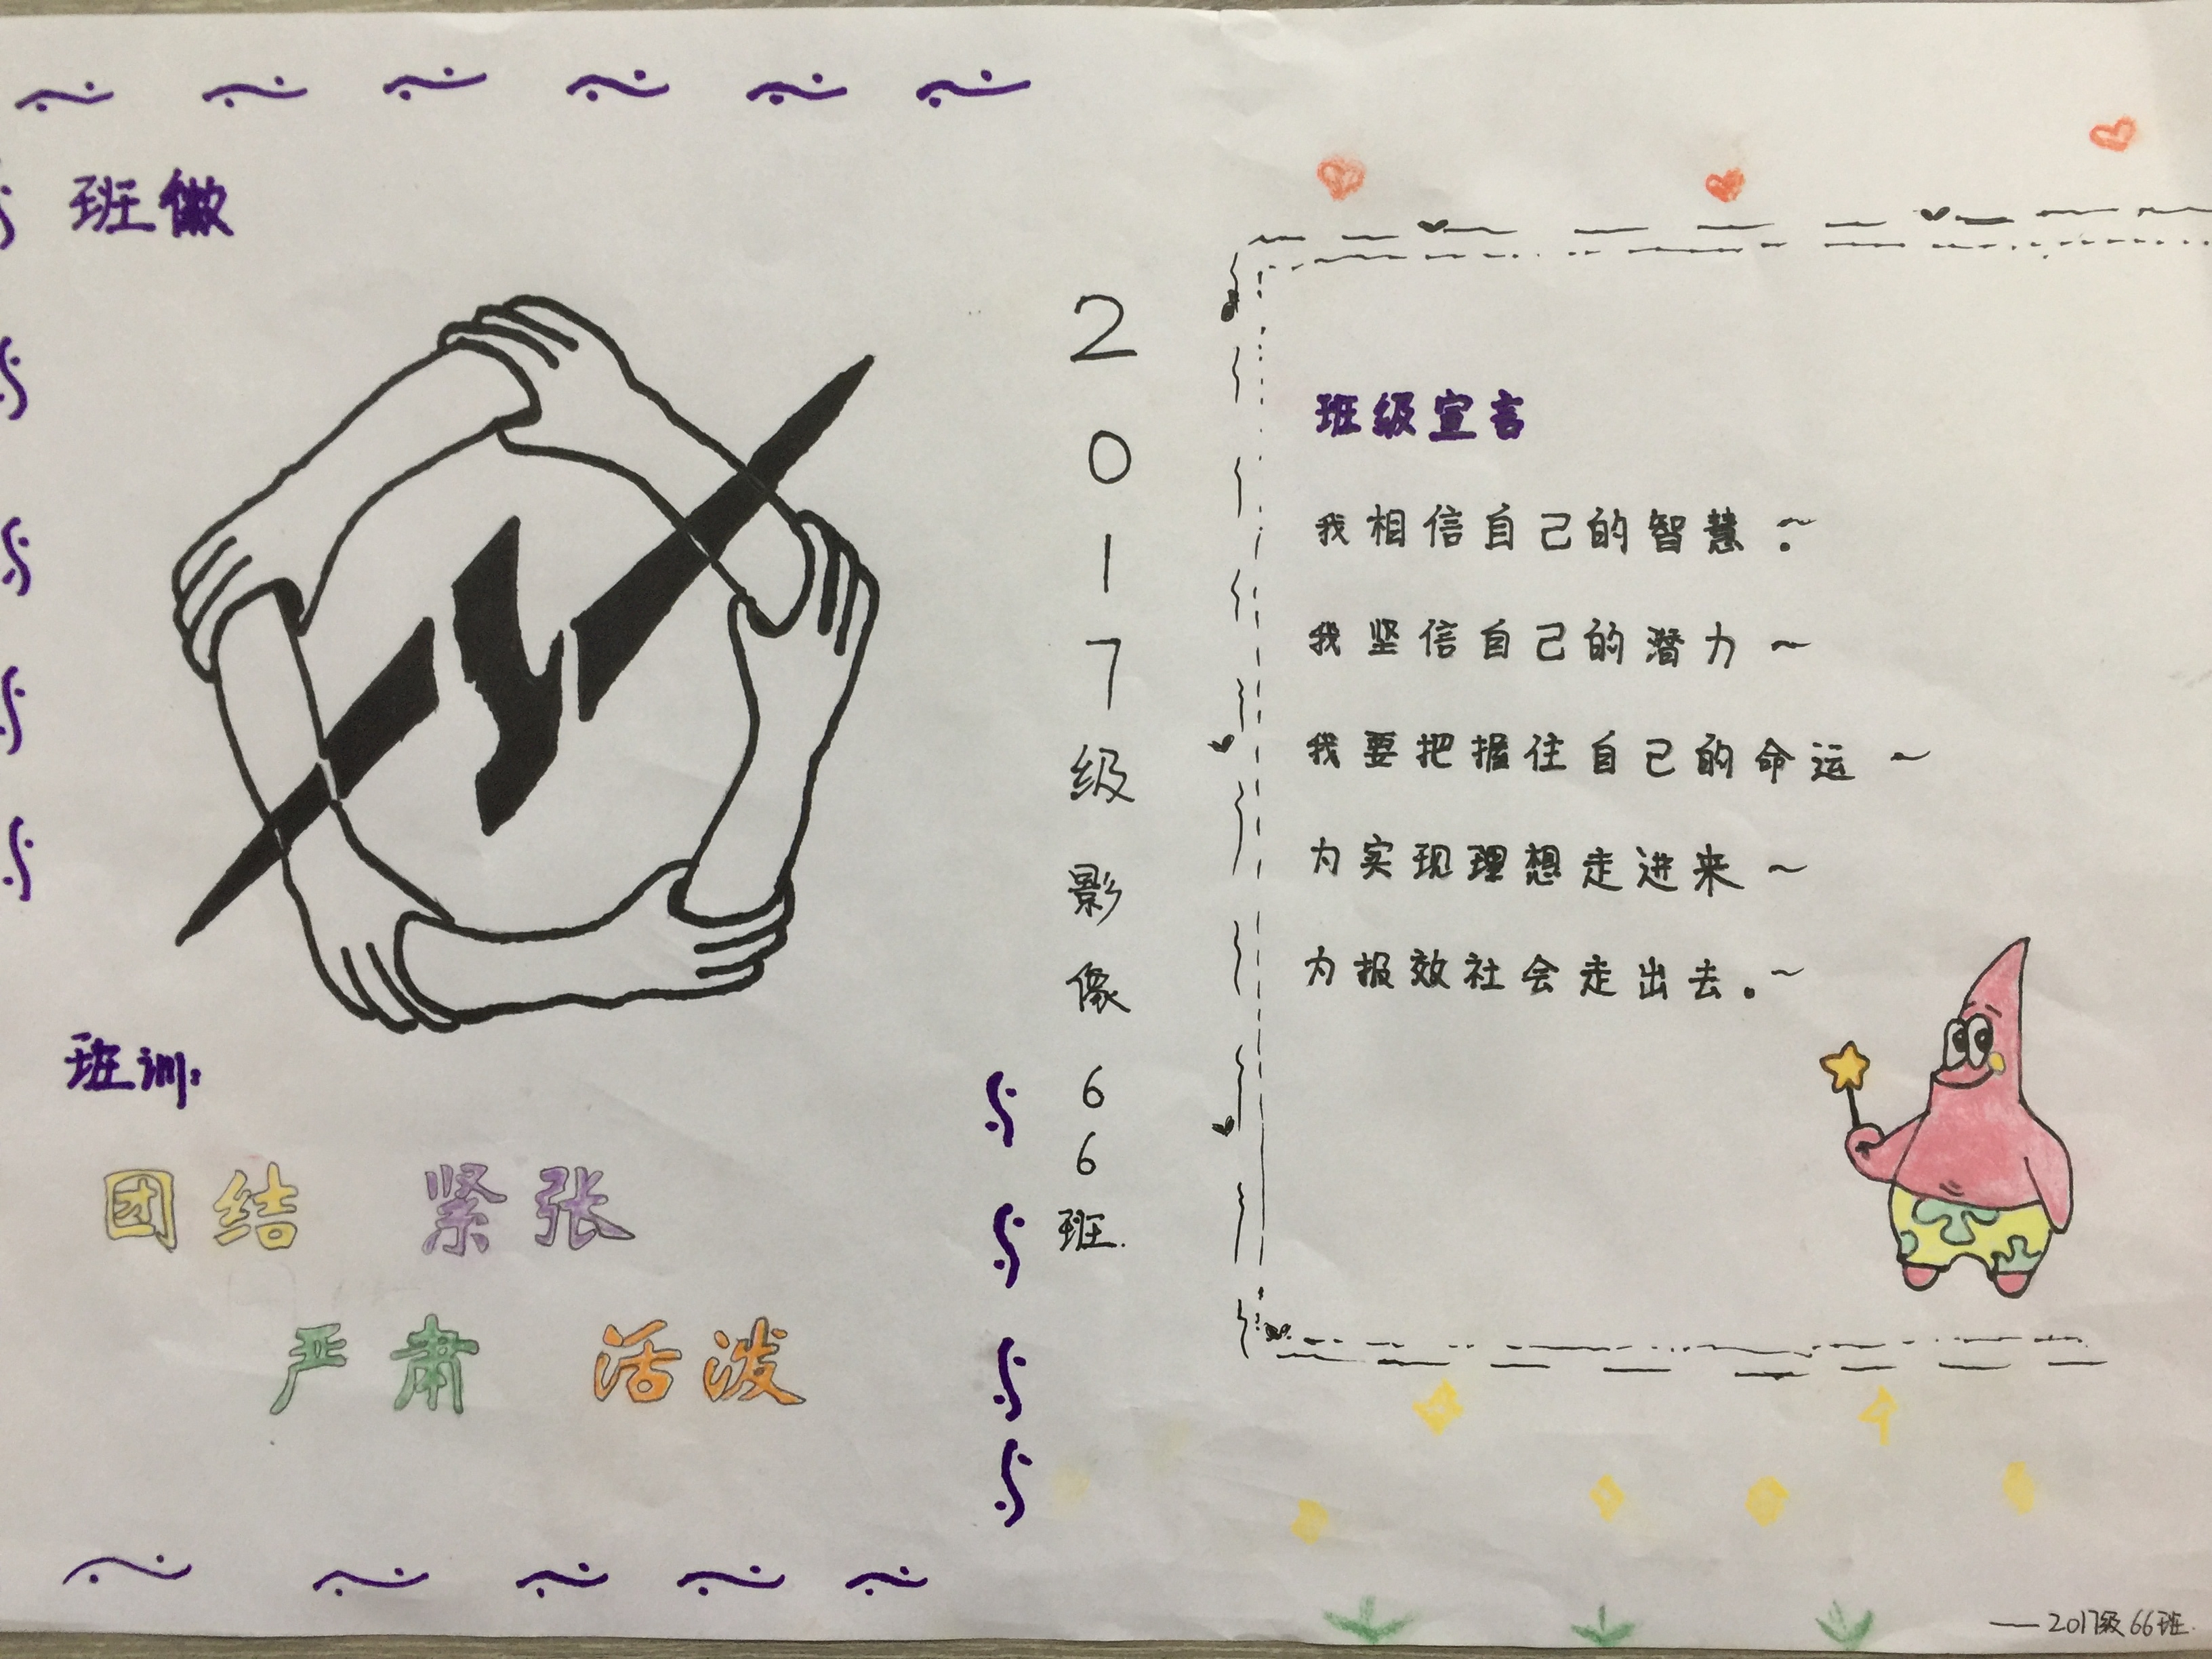 班徽
班训:
团结 紧张
严肃 活泼
2017级影像66班.
班级宣言
我相信自己的智慧~
我坚信自己的潜力~
我要把握住自己的命运~
为实现理想走进来~
为报效社会走出去。~
——2017级66班.